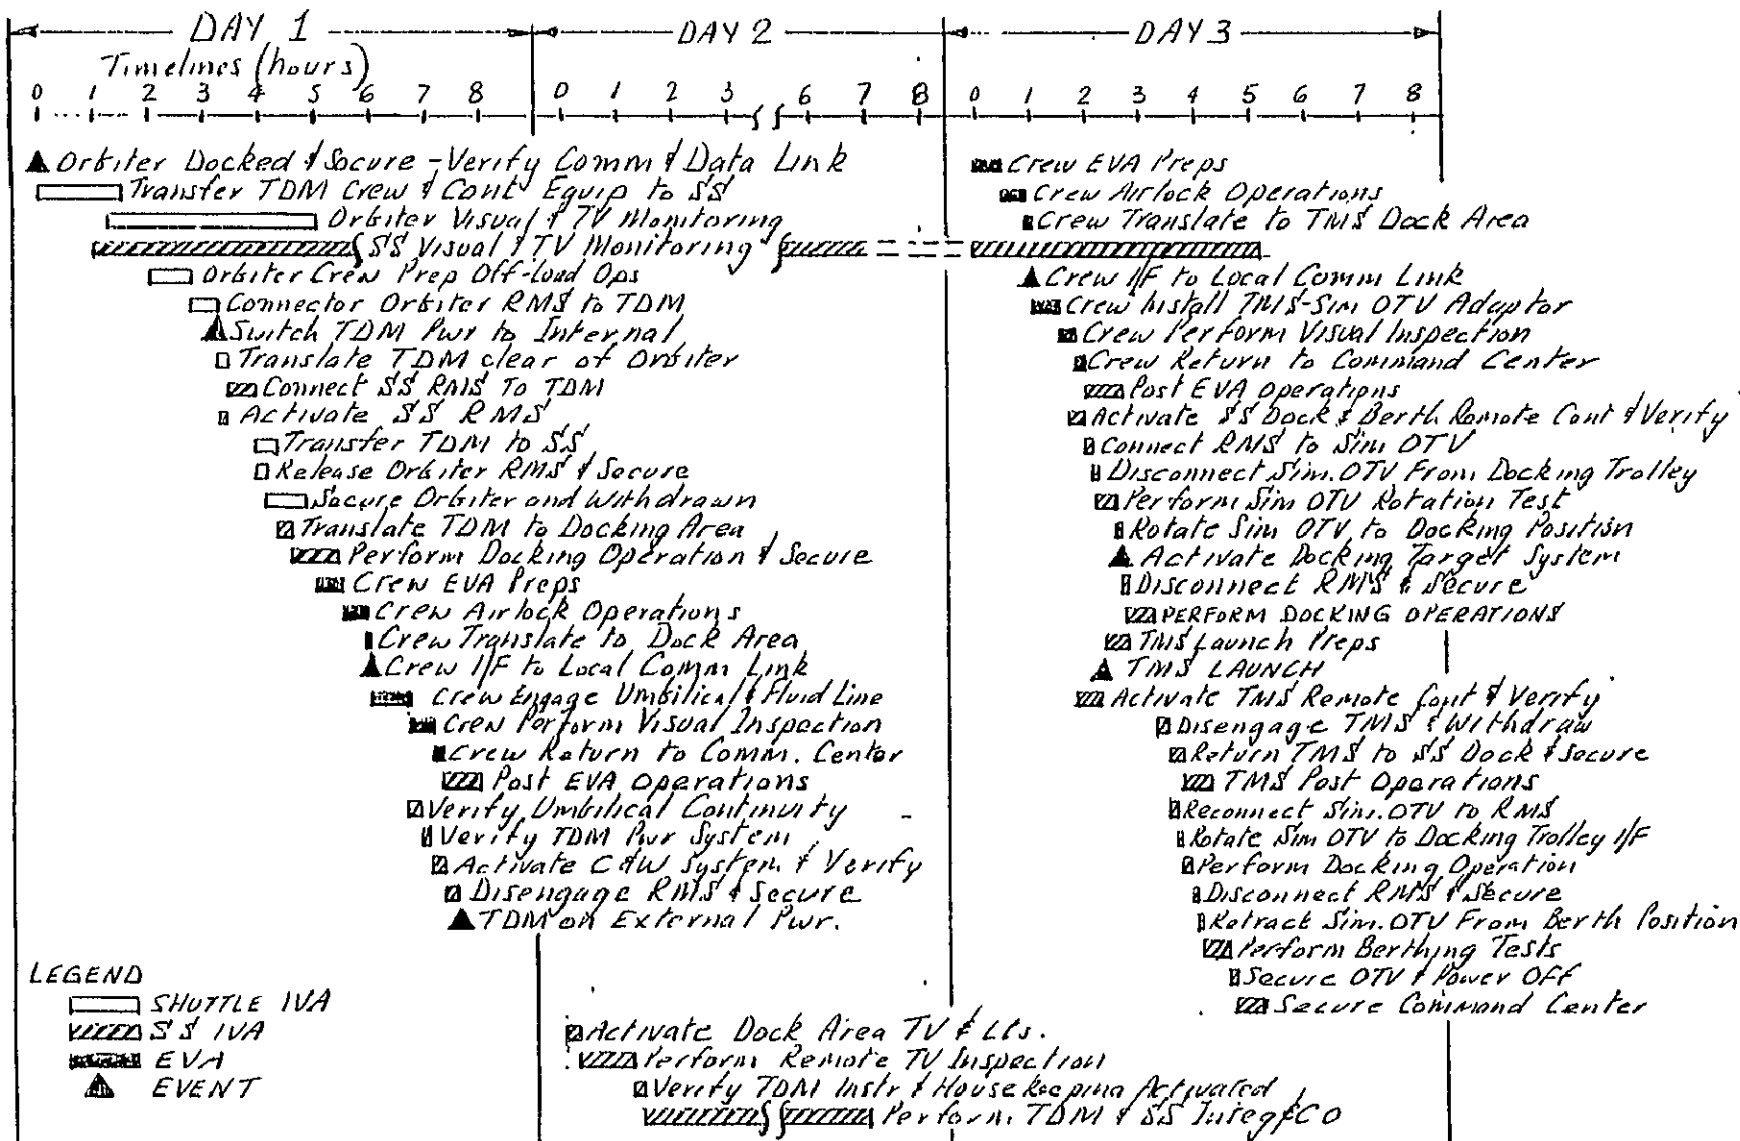 DAY 1
DAY 2
DAY 3
Timelines (hours)
0 1 2 3 4 5 6 7 8 0 1 2 3 6 7 8 0 1 2 3 4 5 6 7 8
Orbiter Docked & Secure - Verify Comm & Data Link
Transfer TDM Crew & Cont Equip to SS
Orbiter Visual & TV Monitoring
SS Visual & TV Monitoring
Orbiter Crew Prep Off-load Ops
Connector Orbiter RMS to TDM
Switch TDM Pwr to Internal
Translate TDM clear of Orbiter
Connect SS RMS To TDM
Activate SS RMS
Transfer TDM to SS
Release Orbiter RMS & Secure
Secure Orbiter and Withdrawn
Translate TDM to Docking Area
Perform Docking Operation & Secure
Crew EVA Preps
Crew Airlock Operations
Crew Translate to Dock Area
Crew I/F to Local Comm Link
Crew Engage Umbilical & Fluid Line
Crew Perform Visual Inspection
Crew Return to Comm. Center
Post EVA Operations
Verify Umbilical Continuity
Verify TDM Pwr System
Activate C&W System & Verify
Disengage RMS & Secure
TDM on External Pwr.
Activate Dock Area TV & Lts.
Perform Remote TV Inspection
Verify TDM Instr & Housekeeping Activated
Perform TDM & SS Integ & C O
Crew EVA Preps
Crew Airlock Operations
Crew Translate to TMS Dock Area
Crew I/F to Local Comm Link
Crew Install TMS-Sim OTV Adaptor
Crew Perform Visual Inspection
Crew Return to Command Center
Post EVA Operations
Activate SS Dock & Berth Remote Cont & Verify
Connect RMS to Sim OTV
Disconnect Sim. OTV From Docking Trolley
Perform Sim OTV Rotation Test
Rotate Sim OTV to Docking Position
Activate Docking Target System
Disconnect RMS & Secure
PERFORM DOCKING OPERATIONS
TMS Launch Preps
TMS LAUNCH
Activate TMS Remote Cont & Verify
Disengage TMS & Withdraw
Return TMS to SS Dock & Secure
TMS Post Operations
Reconnect Sim. OTV to RMS
Rotate Sim OTV to Docking Trolley I/F
Perform Docking Operation
Disconnect RMS & Secure
Retrack Sim. OTV From Berth Position
Perform Berthing Tests
Secure OTV & Power OFF
Secure Command Center
LEGEND
SHUTTLE IVA
SS IVA
EVA
EVENT